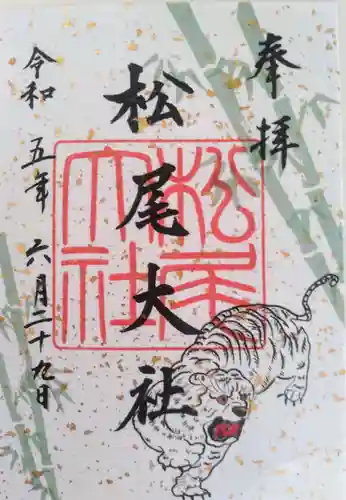 奉拝
松尾大社
松尾大社
令和五年六月二十九日